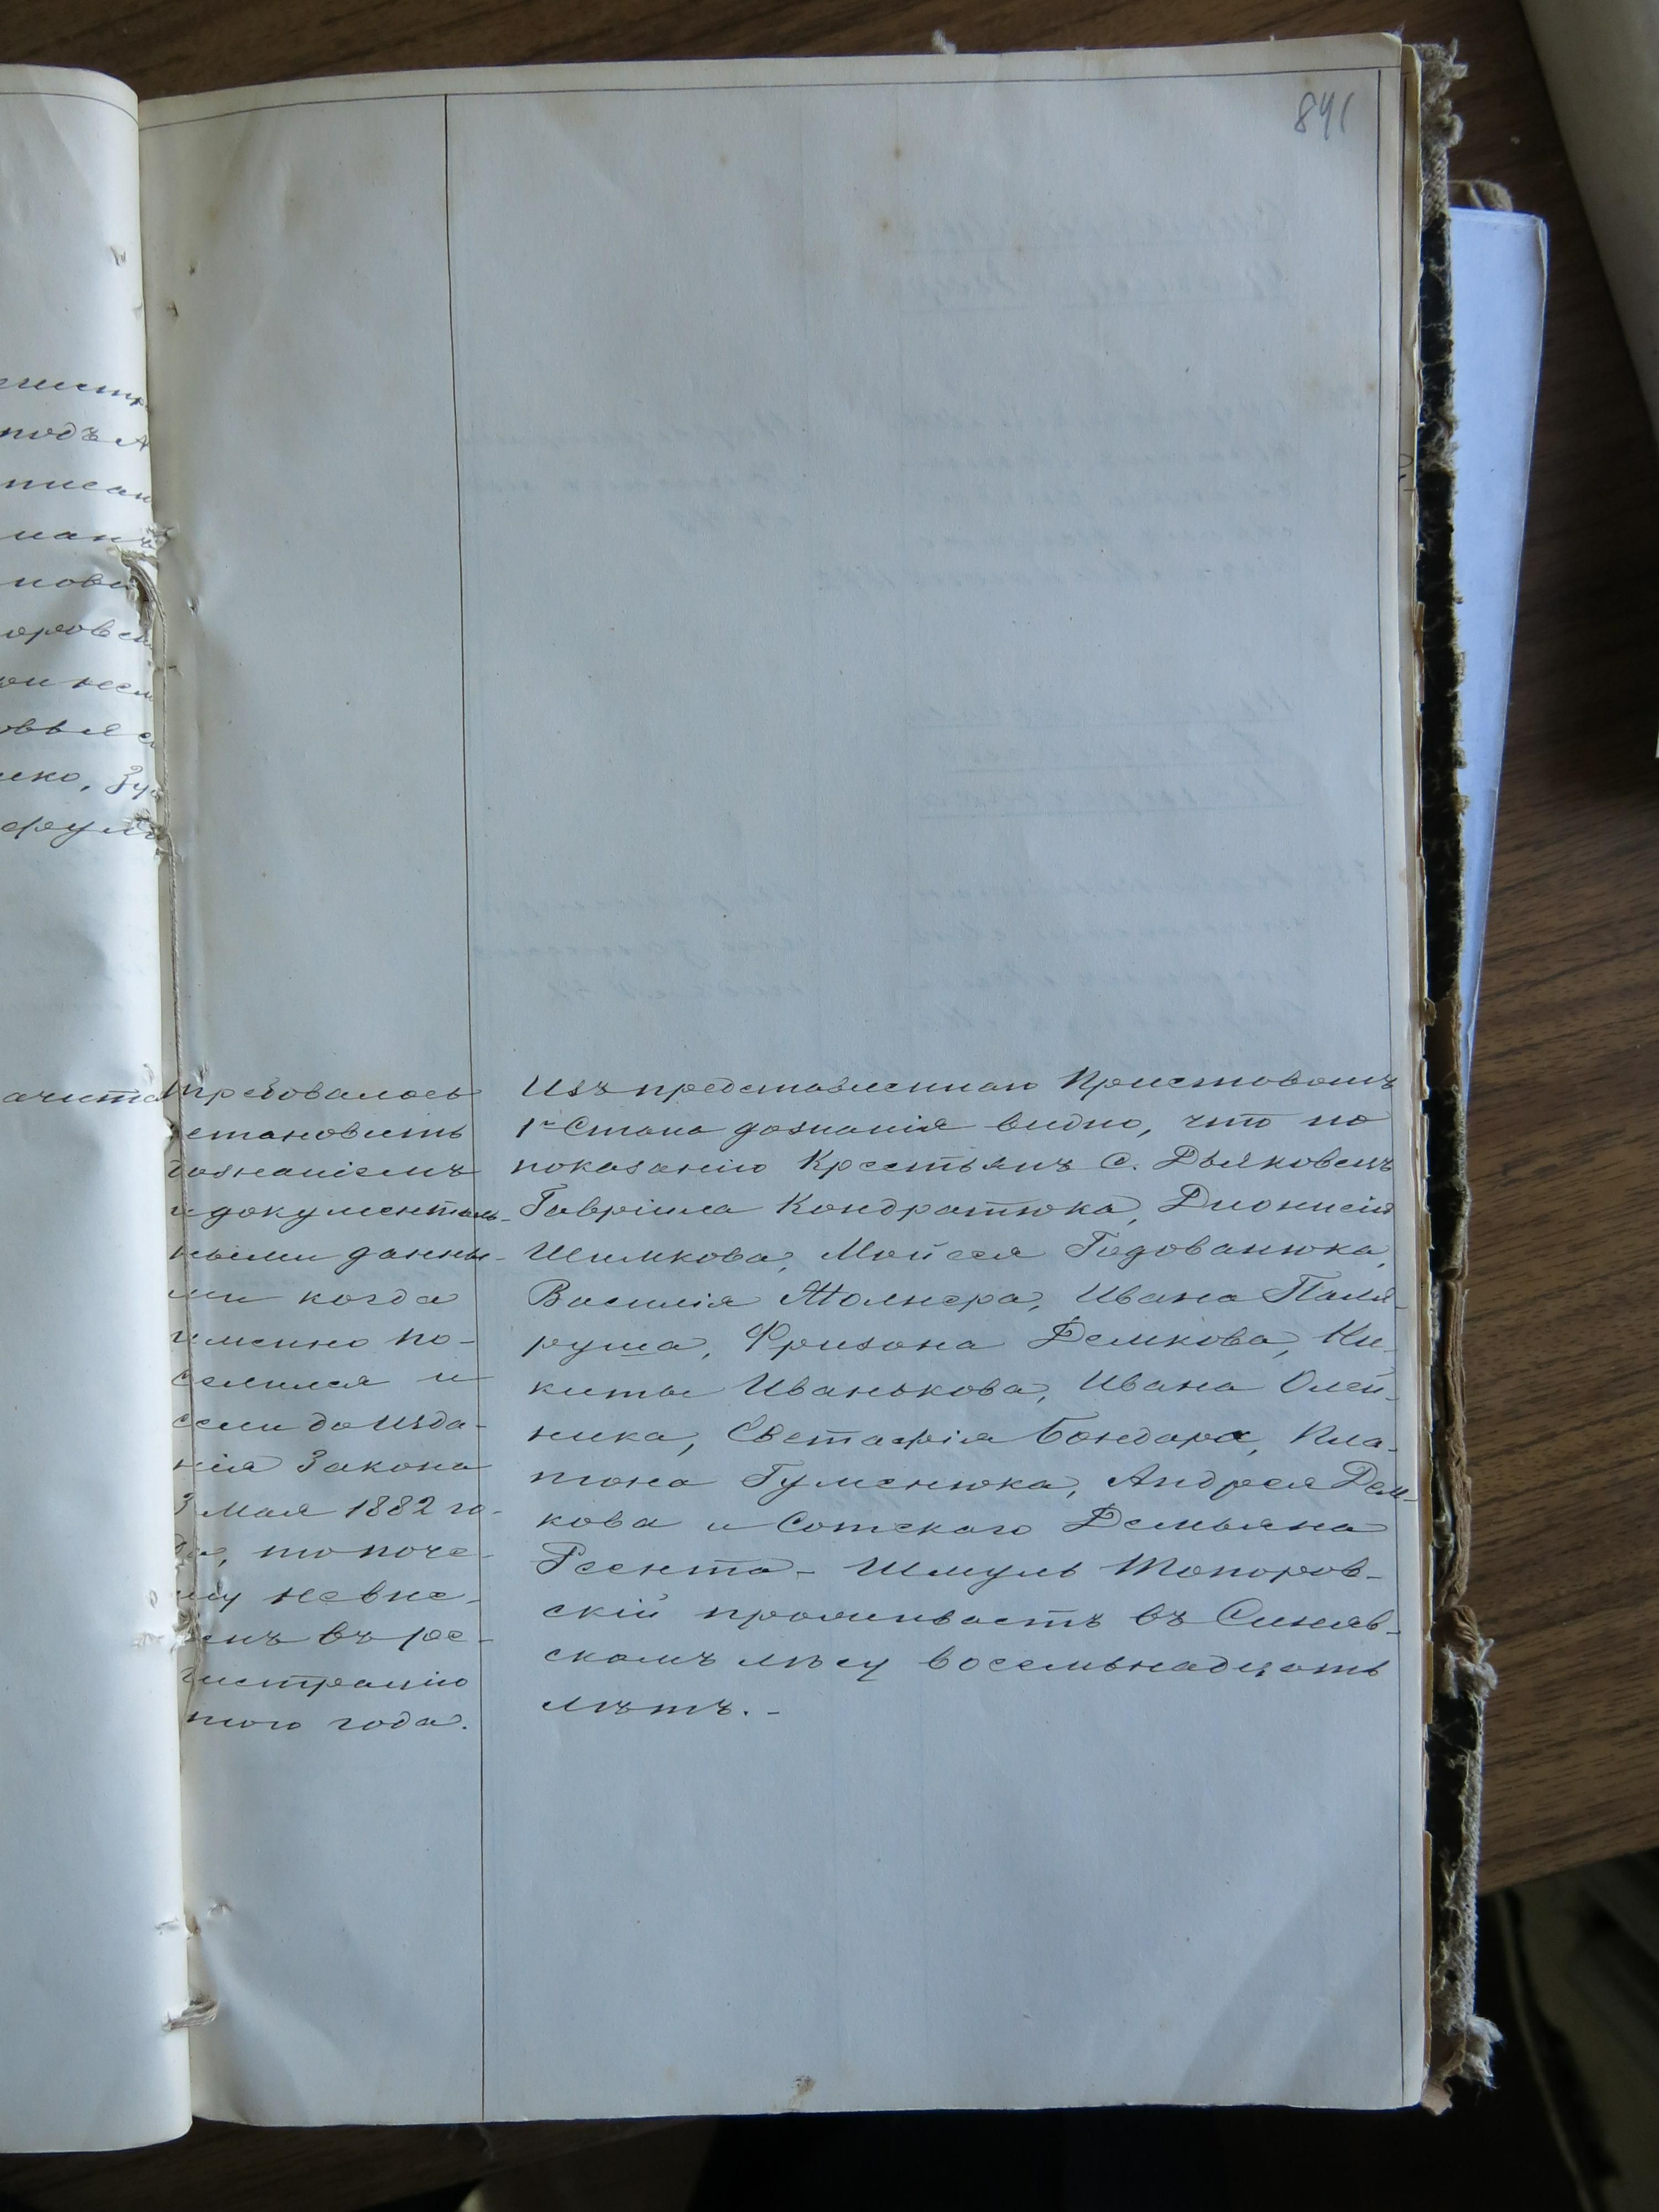 841
подъ
Требовалось
установить
дознаніемъ
и документаль-
ными данны-
ми когда
именно по-
селился и
если до изда-
нія Закона
3 Мая 1882 го-
да, то поче-
му не вне-
сенъ въ ре-
гистрацію
того года.
Изъ представленнаго Приставомъ
1го Стана дознанія видно, что по
показанію Крестьянъ с. Дьяковецъ
Гавріила Кондратюка, Дионисія
Шимкова, Мойсея Годованюка,
Василія Жолнера, Ивана Паля-
руша, Фризона Демкова, Ни-
киты Иванькова, Ивана Олей-
ника, Евстафія Бондара, Пла-
тона Гуменюка, Андрея Дем-
кова и Сотскаго Демьяна
Реента - Шмуль Топоров-
скій проживаетъ въ Синяв-
скомъ лѣсу восемьнадцать
лѣтъ. -